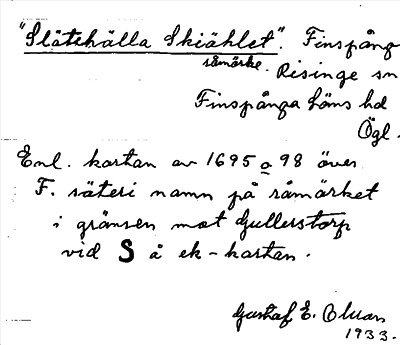 "Slätehälla Skiählet". Finspång
råmärke. Risinge sn
Finspånga Läns hd
Ögl.
Enl. kartan av 1695 o 98 över
F. säteri namn på råmärket
i gränsen mot Gullerstorp
vid S å ek-kartan.
Gustaf E. Olsson
1933.